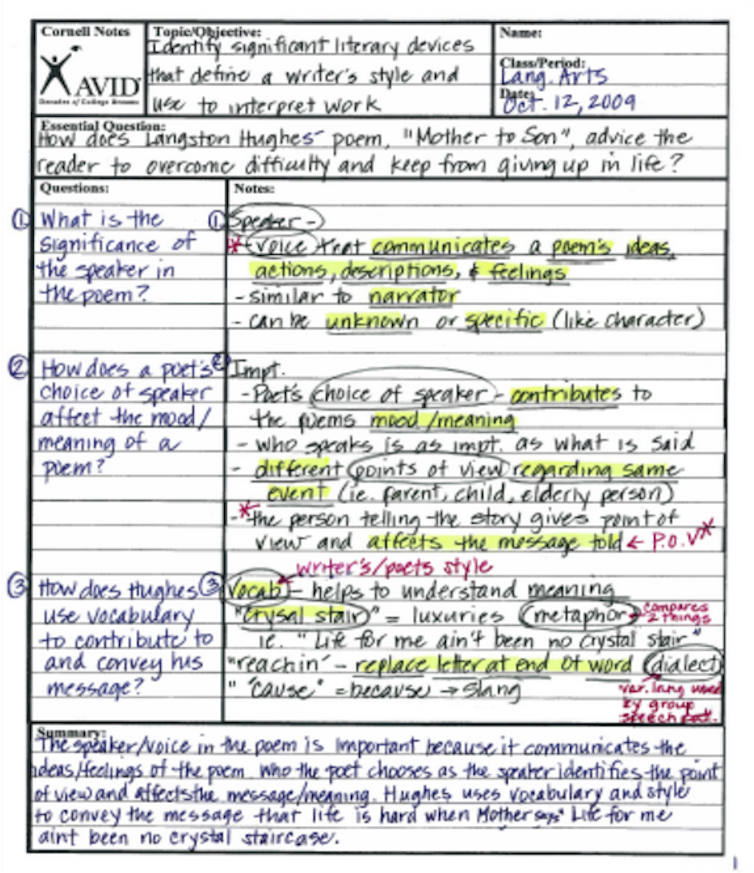 Cornell Notes
AVID
Decades of College Dreams
Topic/Objective:
Identify significant literary devices
that define a writer's style and
use to interpret work
Name:
Class/Period:
Lang. Arts
Date:
Oct. 12, 2009
Essential Question:
How does Langston Hughes' poem, "Mother to Son", advice the
reader to overcome difficulty and keep from giving up in life?
Questions:
① What is the
significance of
the speaker in
the poem?
② How does a poet's
choice of speaker
affect the mood/
meaning of a
poem?
③ How does Hughes
use vocabulary
to contribute to
and convey his
message?
Notes:
① Speaker -
* - voice that communicates a poem's ideas,
actions, descriptions, & feelings
- similar to narrator
- can be unknown or specific (like character)
② Impt.
- Poet's choice of speaker - contributes to
the poems mood/meaning
- who speaks is as impt. as what is said
- different points of view regarding same
event (ie. parent, child, elderly person)
- * the person telling the story gives point of
view and affects the message told ← P.O.V *
writer's/poets style
③ Vocab - helps to understand meaning
"crysal stair" = luxuries (metaphor) → compares
2 things
ie. "Life for me ain't been no crystal stair"
"reachin' - replace letter at end of word (dialect)
" 'cause" = because → slang
var. lang used
by group
speech
Summary:
The speaker/voice in the poem is important because it communicates the
ideas/feelings of the poem. Who the poet chooses as the speaker identifies the point
of view and affects the message/meaning. Hughes uses vocabulary and style
to convey the message that life is hard when Mother says "Life for me
aint been no crystal staircase.
1